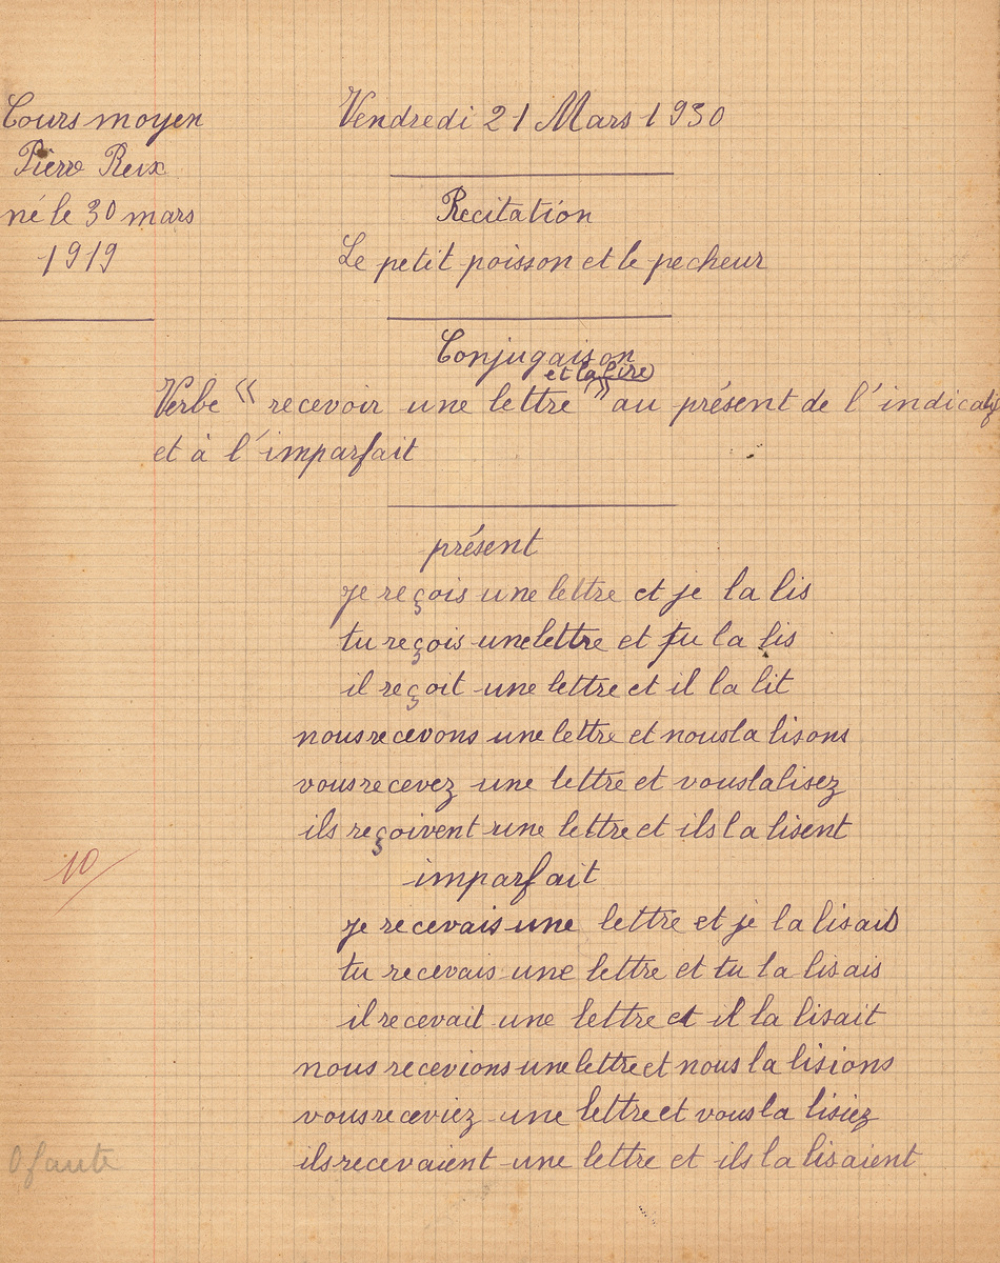 Cours moyen
Pierre Reix
né le 30 mars
1919
Vendredi 21 Mars 1930
Recitation
Le petit poisson et le pecheur
Conjugaison
et la lire
Verbe « recevoir une lettre » au présent de l'indicatif
et à l'imparfait
présent
je reçois une lettre et je la lis
tu reçois une lettre et tu la lis
il reçoit une lettre et il la lit
nous recevons une lettre et nous la lisons
vous recevez une lettre et vous la lisez
ils reçoivent une lettre et ils la lisent
10
imparfait
je recevais une lettre et je la lisais
tu recevais une lettre et tu la lisais
il recevait une lettre et il la lisait
nous recevions une lettre et nous la lisions
vous receviez une lettre et vous la lisiez
0 faute
ils recevaient une lettre et ils la lisaient